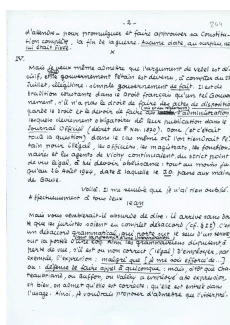 - 2 -
d'attendre pour promulguer et faire approuver sa Constitu-
tion complète, la fin de la guerre. Aucune date, au surplus, ne
lui était fixée.
x
IV.
Mais je veux même admettre que l'argument de Vedel est dé-
cisif, et le gouvernement Pétain est devenu, à compter du
juillet, illégitime, simple gouvernement de fait. Il est de
tradition constante dans le Droit français qu'un tel Gouver-
nement, s'il n'a pas le droit de faire des actes de disposition
garde le droit et le devoir de faire d'administration
lesquels deviennent obligatoires dès leur publication dans le
Journal Officiel (décret du 5 Nov. 1870). Donc (et c'était
toute la question) dans le cas même où l'on tiendrait Pé-
tain pour illégal, les officiers, les magistrats, les fonction-
naires et les agents de Vichy continuaient, du strict point
de vue légal, à lui devoir obéissance: tout au moins jus-
qu'au 20 Août 1944, date à laquelle le mains
de Gaulle.
Voilà. Il me semble que je n'ai rien oublié.
Affectueusement à tous deux
x
Mais vous connaissez le absurde de dire: il arrive sans doute
que les juristes soient en complet désaccord (cf. ). C'est
un désaccord grammatical, qui porte sur le sens d'un terme
sur la portée d'une loi. Ainsi les grammairiens disputent à
perte de vue, s'il est ou non correct (légal) d'employer, par
exemple, l'expression: malgré que (je me sois efforcé...)
ou: défense de faire appel à quiconque: mais, sitôt que Cha-
teaubriand, ou Buffon, ou Valéry a employé cette expression,
eh bien, on admet qu'elle est correcte: qu'elle est entrée dans
l'usage. Ainsi, je voudrais proposer d'admettre que l'interpré-